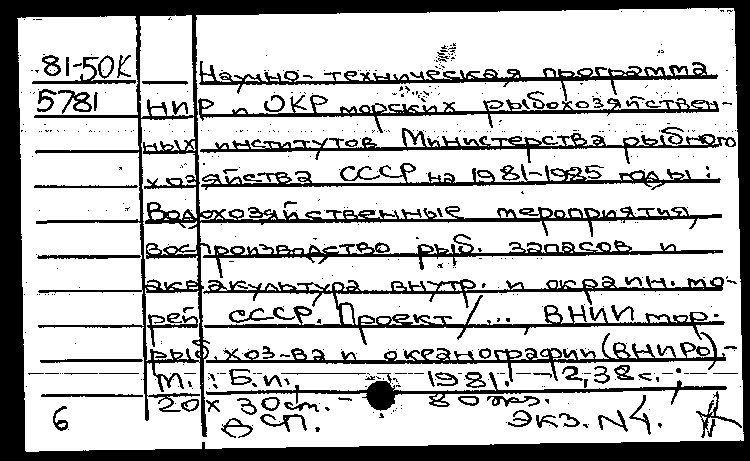 81-50К Научно-техническая программа
5781 НИР и ОКР морских рыбохозяйствен-
ных институтов Министерства рыбного
хозяйства СССР на 1981-1985 годы:
Водохозяйственные мероприятия,
воспроизводство рыб. запасов и
аквакультура внутр. и окраин. мо-
рей СССР. Проект/..., ВНИИ мор.
рыб. хоз-ва и океанографии (ВНИРО).-
М.: Б.и., 1981. - 2,38 с.;
20х30см. - 80 экз.
6 В СП. Экз. №4.